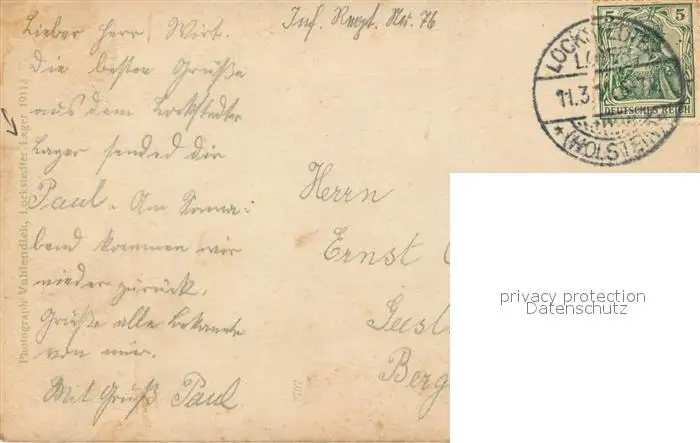 Inf. Regt. Nr. 76
Lieber Herr Wirt.
Die besten Grüße
aus dem Lockstedter
Lager sendet dir
Paul. Am Sonna-
bend kommen wir
wieder zurück.
Grüße alle Bekannte
von mir.
Mit Gruß Paul.
Photograph Vahlendiek, Lockstedter Lager 1911.
5 5
DEUTSCHES REICH
LOCKSTEDTER
LAGER
11.3.
* (HOLSTEIN)
Herrn
Ernst
Geest
Berg
privacy protection
Datenschutz